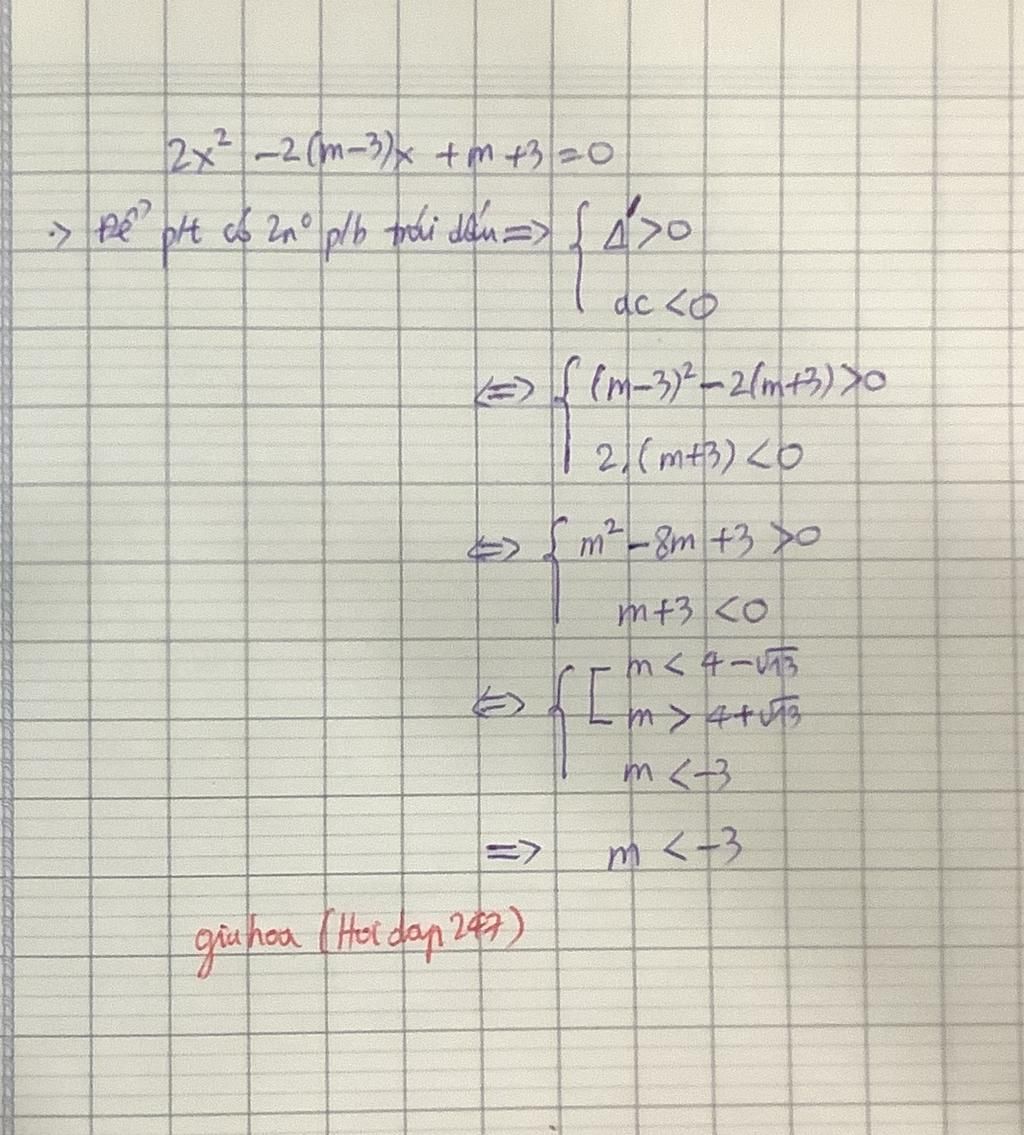 2x² - 2(m-3)x + m + 3 = 0
-> Để pht có 2n⁰ p/b trái dấu => { Δ' > 0
ac < 0
<=> { (m-3)² - 2(m+3) > 0
2.(m+3) < 0
<=> { m² - 8m + 3 > 0
m + 3 < 0
<=> { [ m < 4 - √13
m > 4 + √13
m < -3
=> m < -3
giuhoa (Hoidap247)